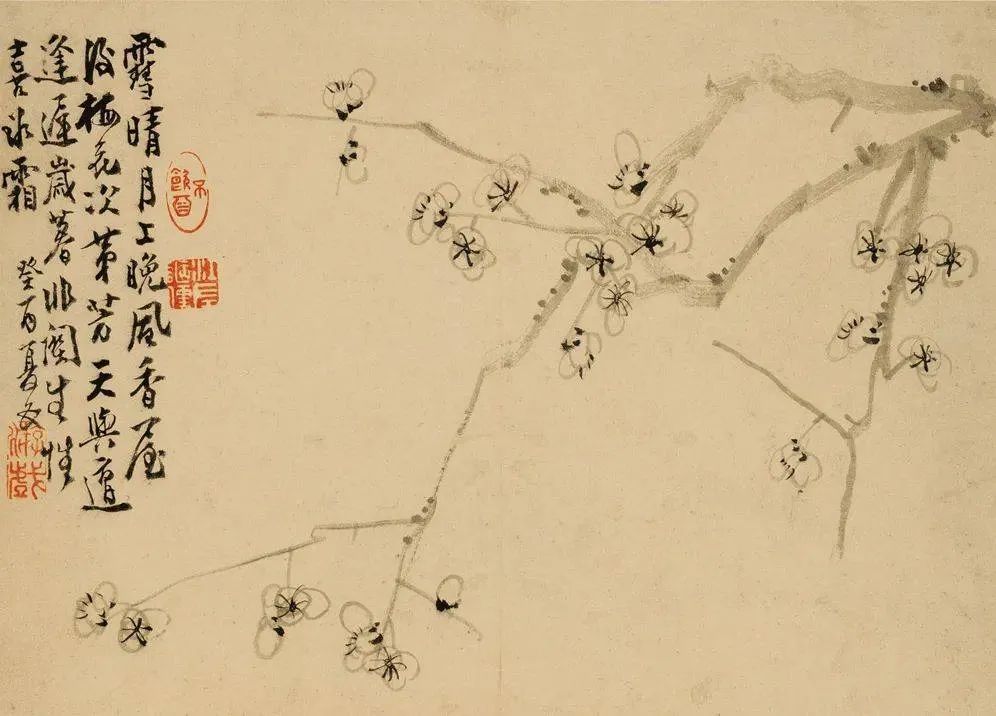 雪晴月上晚風香屋
後梅花次第芳天與遭
逢遲歲暮非關生性
喜冰霜
癸酉夏